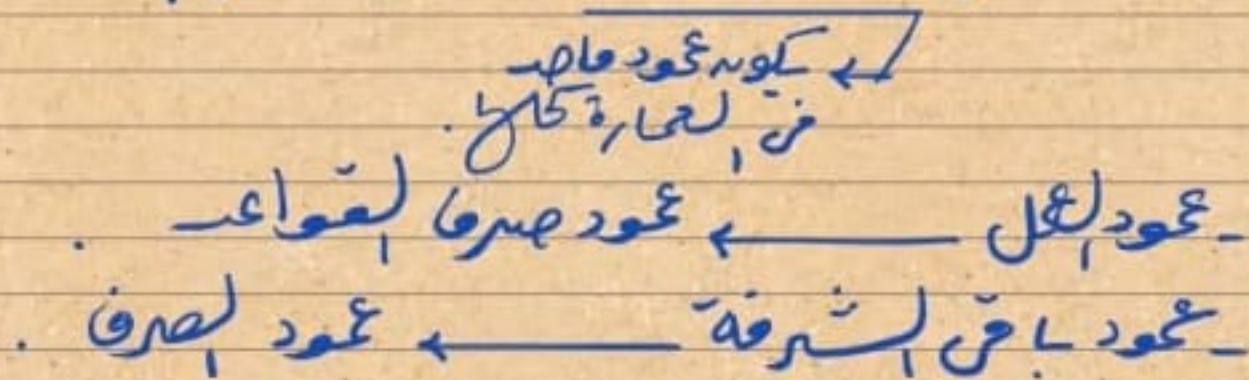 يكون عمود واحد
في العمارة كلها.
- عمود العمل ← عمود صرف القواعد.
- عمود باقي الشرفة ← عمود الصرف.